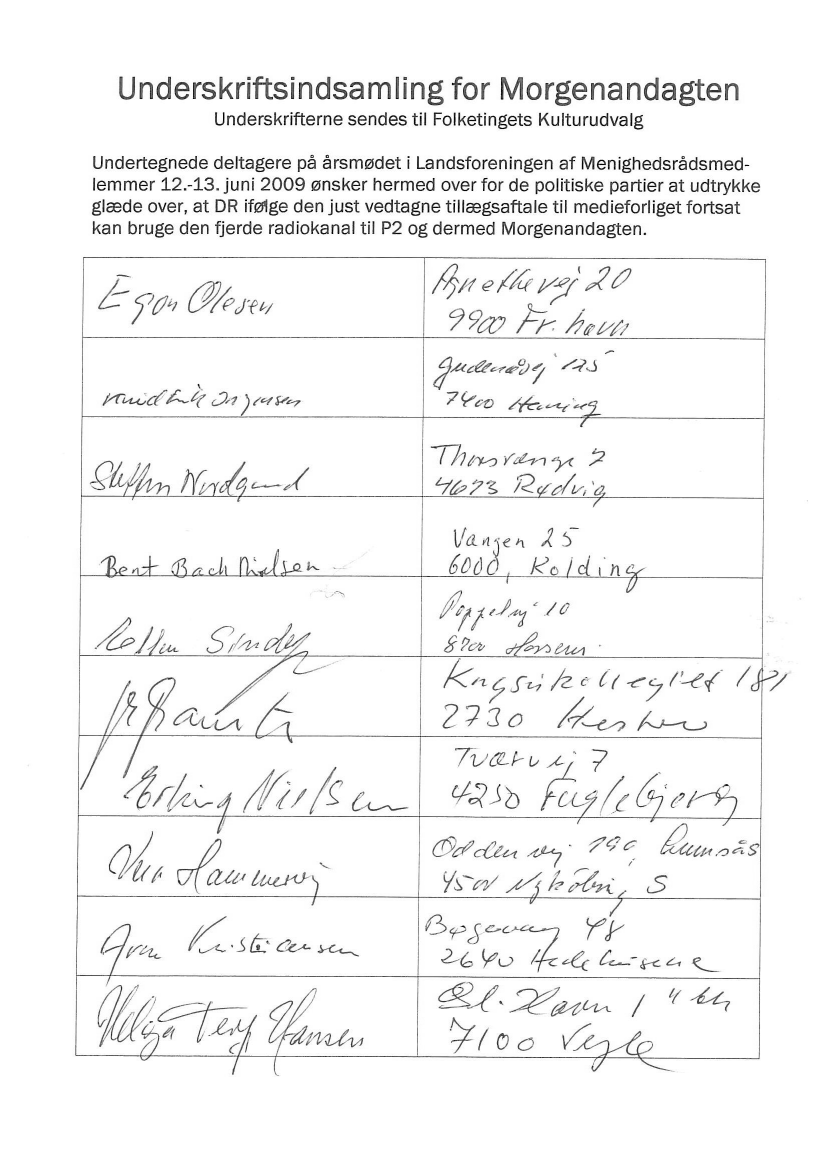 Underskriftsindsamling for Morgenandagten
Underskrifterne sendes til Folketingets Kulturudvalg
Undertegnede deltagere på årsmødet i Landsforeningen af Menighedsrådsmed-
lemmer 12.-13. juni 2009 ønsker hermed over for de politiske partier at udtrykke
glæde over, at DR ifølge den just vedtagne tillægsaftale til medieforliget fortsat
kan bruge den fjerde radiokanal til P2 og dermed Morgenandagten.
Egon Olesen
Agnethevej 20
9900 Fr. havn
Knud Erik Jørgensen
Gudenåvej 125
7400 Herning
Steffen Nordgaard
Thorsvænge 2
4673 Rødvig
Bent Bach Nielsen
Vangen 25
6000, Kolding
Sindey
Poppelvej 10
8700 Horsens
181
2730 Herlev
Erling Nielsen
Tværvej 7
4250 Fuglebjerg
Hammervej
Oddenvej 190, Lumsås
4500 Nykøbing S
Kristiansen
Bøgevang 48
2640 Hedehusene
Helga Terp Hansen
Gl. Havn 1
7100 Vejle